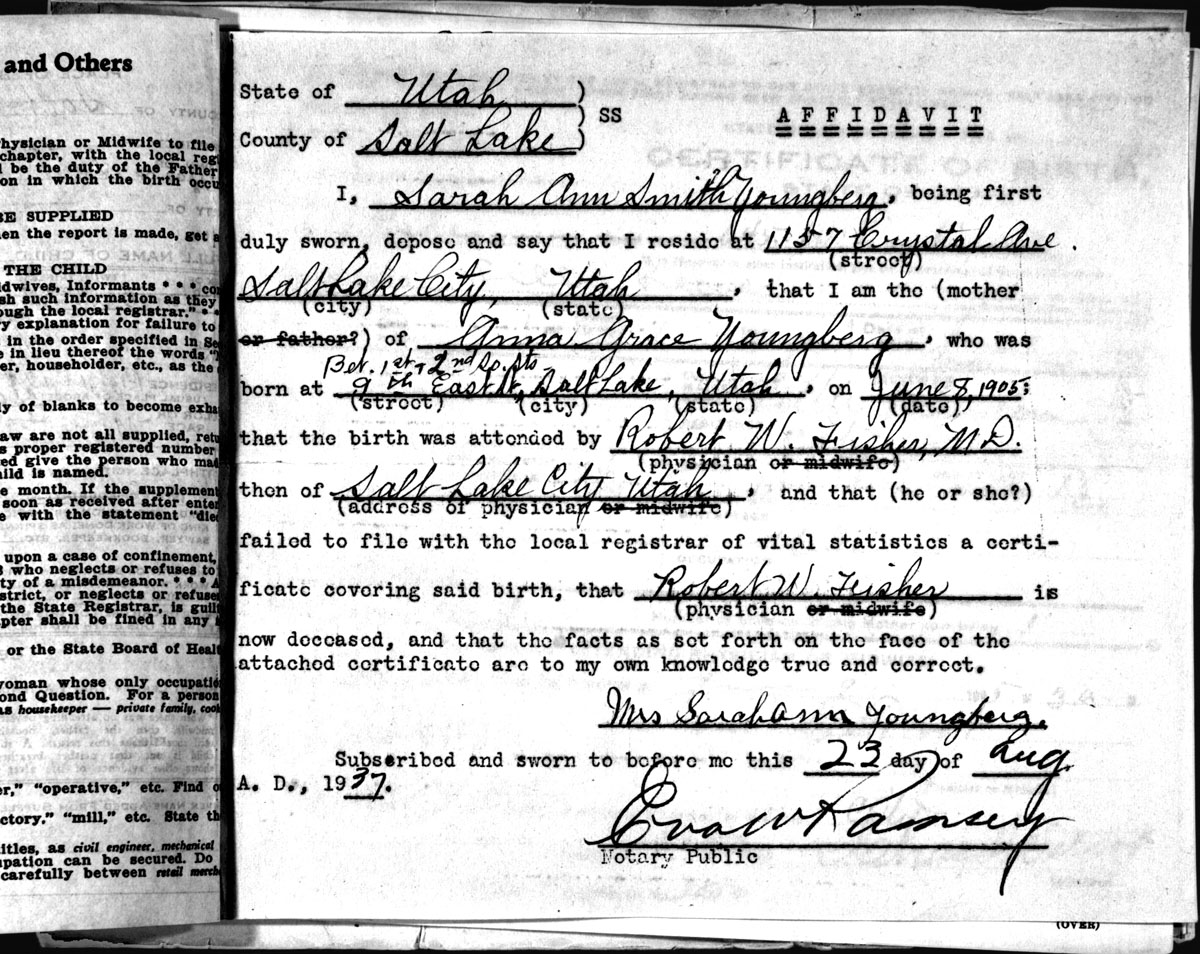 and Others
hysician or Midwife to file
chapter, with the local reg
l be the duty of the Father
on in which the birth occu
BE SUPPLIED
en the report is made, get a
THE CHILD
idwives, Informants * * * con
sh such information as they
ough the local registrar." * *
ry explanation for failure to
in the order specified in Se
e in lieu thereof the words "
er, householder, etc., as the
ly of blanks to become exha
aw are not all supplied, retu
s proper registered number
ed give the person who mad
hild is named.
e month. If the supplement
soon as received after enter
e with the statement "died
upon a case of confinement,
who neglects or refuses to
ty of a misdemeanor. * * * A
strict, or neglects or refuse
the State Registrar, is guilt
pter shall be fined in any
or the State Board of Healt
woman whose only occupatio
ond Question. For a person
as housekeeper — private family, cook
er," "operative," etc. Find o
ctory." "mill," etc. State th
titles, as civil engineer, mechanical
upation can be secured. Do
carefully between retail merch
State of Utah )
) SS AFFIDAVIT
County of Salt Lake )
I, Sarah Ann Smith Youngberg, being first
duly sworn, depose and say that I reside at 1157 Crystal Ave.
(street)
Salt Lake City, Utah, that I am the (mother
(city) (state)
or father?) of Anna Grace Youngberg, who was
Bet. 1st + 2nd So. Sts
born at 9th East St, Salt Lake, Utah, on June 8, 1905;
(street) (city) (state) (date)
that the birth was attended by Robert W. Fisher, M.D.
(physician or midwife)
then of Salt Lake City Utah, and that (he or she?)
(address of physician or midwife)
failed to file with the local registrar of vital statistics a certi-
ficate covering said birth, that Robert W. Fisher is
(physician or midwife)
now deceased, and that the facts as set forth on the face of the
attached certificate are to my own knowledge true and correct.
Mrs Sarah Ann Youngberg.
Subscribed and sworn to before me this 23 day of Aug.
A. D., 1937.
Eva W Ramsey
Notary Public
(OVER)